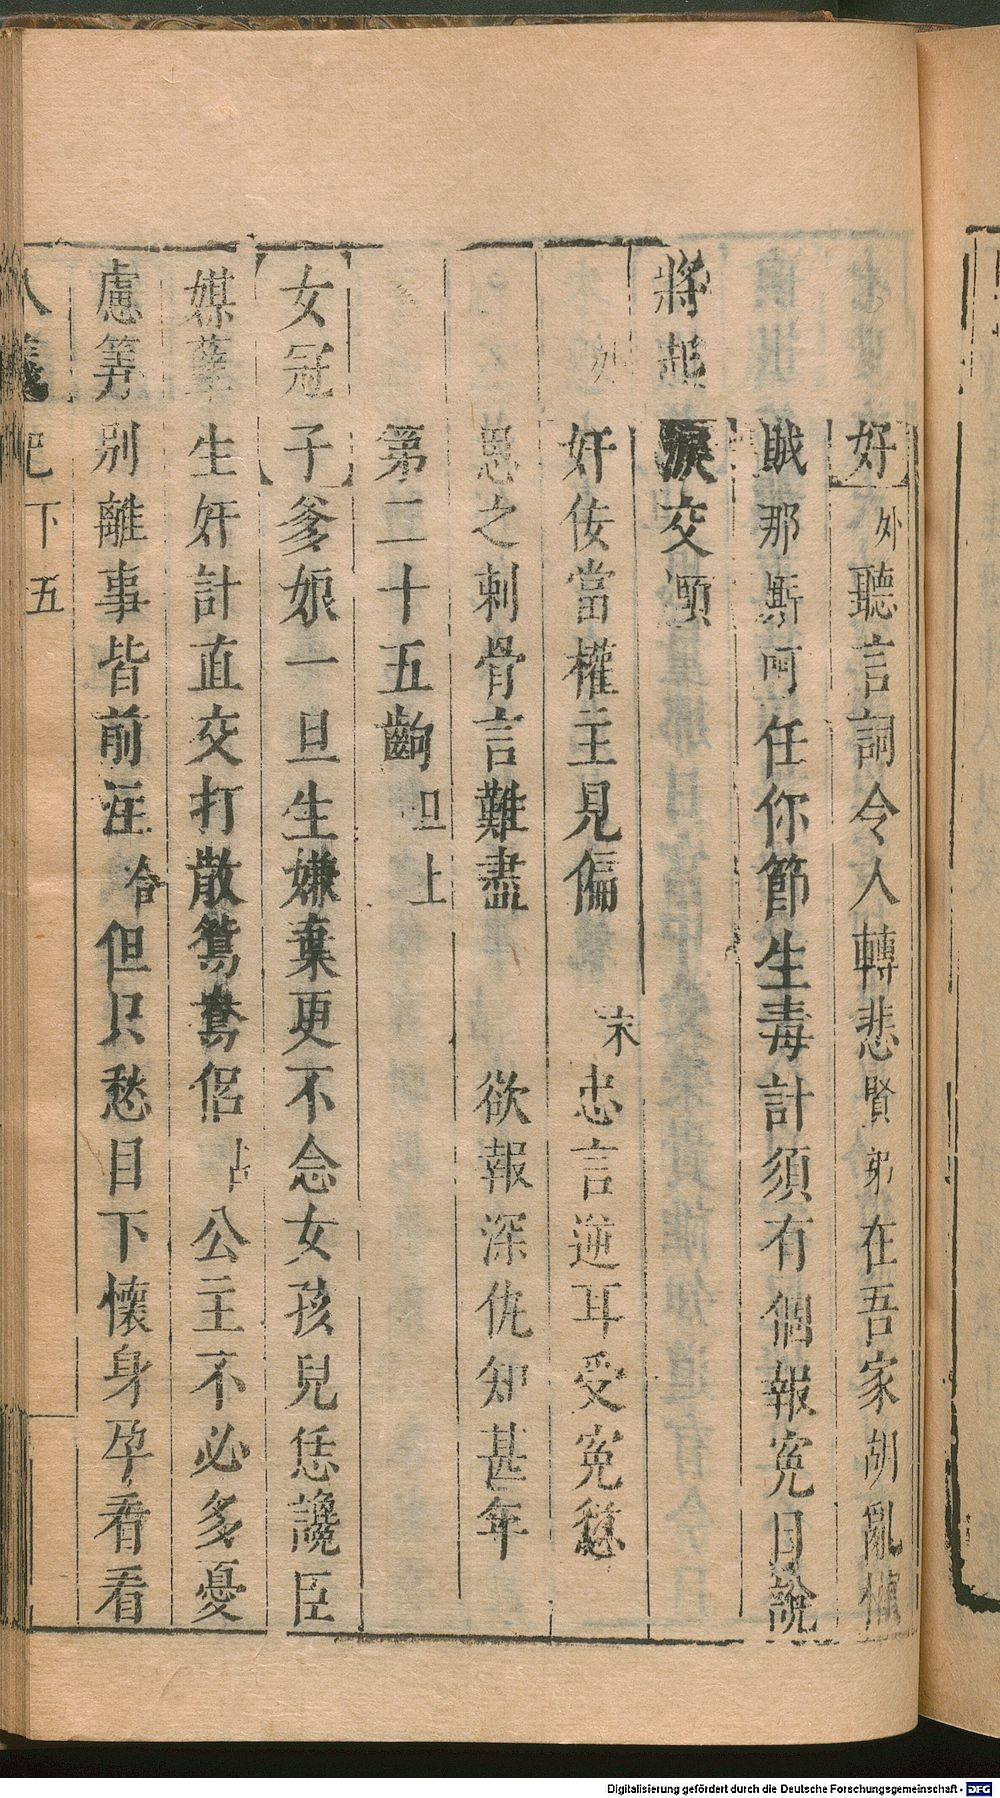 好外聽言詞令人轉悲賢弟在吾家胡亂
賊那厮呵任你節生毒計須有個報寃目說
將起淚交頤
奸佞當權主見偏 末忠言逆耳受寃愆
恩之刺骨言難盡 欲報深仇知甚年
第二十五齣旦上
女冠子爹娘一旦生嫌棄更不念女孩兒恁讒臣
媒蘖生奸計直交打散鴛鴦侶占公主不必多憂
慮筭別離事皆前注合但只愁目下懷身孕看看
記下五
Digitalisierung gefördert durch die Deutsche Forschungsgemeinschaft - DFG